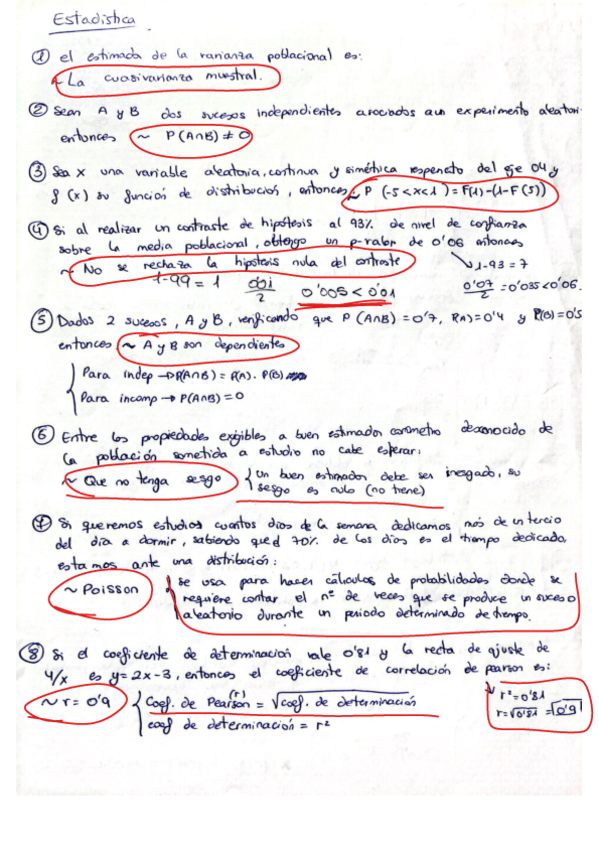 Estadística.
① el estimada de la varianza poblacional es:
~ La cuasivarianza muestral.
② Sean A y B dos sucesos independientes asociados a un experimento aleatori
entonces ~ P(A∩B) ≠ 0
③ Sea X una variable aleatoria, continua y simétrica respecto del eje 04 y
f(x) su función de distribución, entonces ~ P(-5<x<1) = F(1)-(1-F(5))
④ Si al realizar un contraste de hipótesis al 93% de nivel de confianza
sobre la media poblacional, obtengo un p-valor de 0'06 entonces
~ No se rechaza la hipótesis nula del contraste
1-93 = 7
1-99 = 1 0'005 < 0'01 0'07/2 = 0'035 < 0'06.
⑤ Dados 2 sucesos, A y B, verificando que P(A∩B) = 0'7, P(A)=0'4 y P(B)=0'5
entonces ~ A y B son dependientes
Para indep → P(A∩B) = P(A). P(B)
Para incomp → P(A∩B) = 0
⑥ Entre las propiedades exigibles a buen estimador parámetro desconocido de
la población sometida a estudio no cabe esperar:
~ Que no tenga sesgo { Un buen estimador debe ser insesgado, su
sesgo es nulo (no tiene)
⑦ Si queremos estudios cuantos días de la semana dedicamos más de un tercio
del día a dormir, sabiendo que el 70% de los días es el tiempo dedicado,
estamos ante una distribución:
~ Poisson { se usa para hacer cálculos de probabilidades donde se
requiere contar el nº de veces que se produce un suceso
aleatorio durante un periodo determinado de tiempo.
⑧ Si el coeficiente de determinación vale 0'81 y la recta de ajuste de
Y/x es y = 2x-3, entonces el coeficiente de correlación de pearson es:
~ r = 0'9 { Coef. de Pearson (r) = √coef. de determinación
coef de determinación = r²
r² = 0'81
r = √0'81 = 0'9